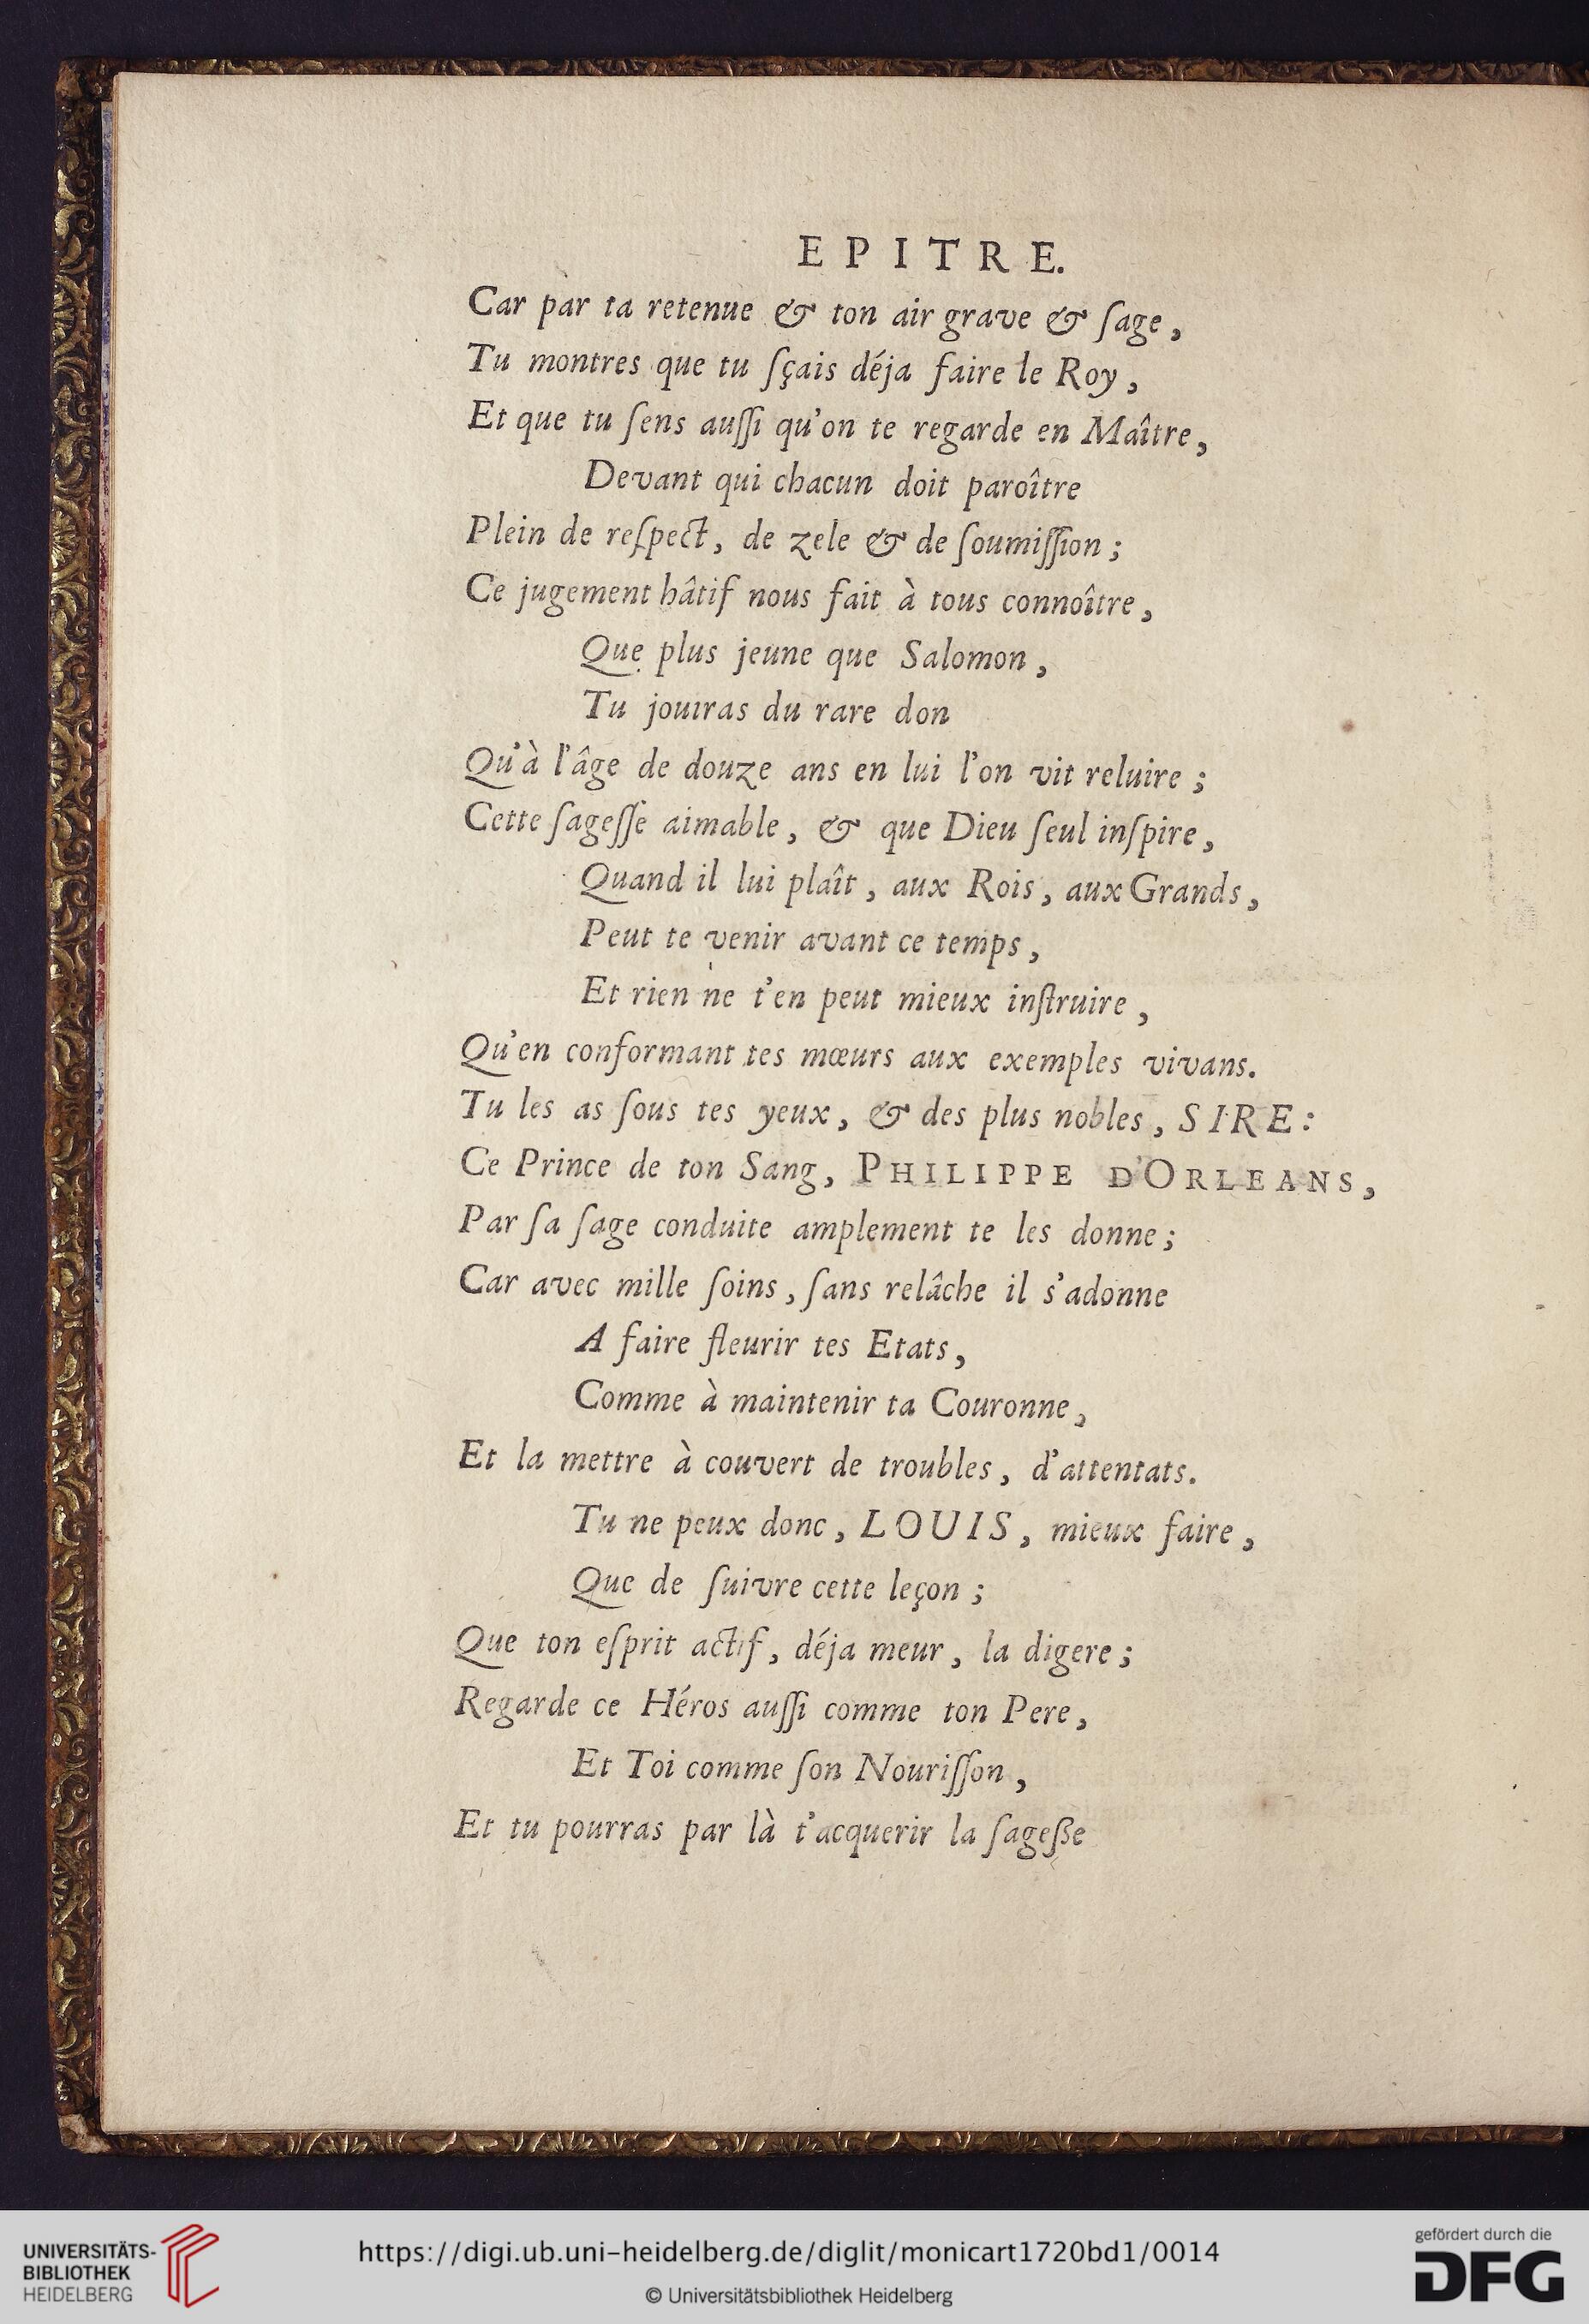 EPITRE.
Car par ta retenue & ton air grave & ſage,
Tu montres que tu ſçais déja faire le Roy,
Et que tu ſens auſſi qu'on te regarde en Maître,
Devant qui chacun doit paroître
Plein de reſpect, de zele & de ſoumiſſion;
Ce jugement hâtif nous fait à tous connoître,
Que plus jeune que Salomon,
Tu jouiras du rare don
Qu'à l'âge de douze ans en lui l'on vit reluire;
Cette ſageſſe aimable, & que Dieu ſeul inſpire,
Quand il lui plaît, aux Rois, aux Grands,
Peut te venir avant ce temps,
Et rien ne t'en peut mieux inſtruire,
Qu'en conformant tes mœurs aux exemples vivans.
Tu les as ſous tes yeux, & des plus nobles, SIRE:
Ce Prince de ton Sang, PHILIPPE D'ORLEANS,
Par ſa ſage conduite amplement te les donne;
Car avec mille ſoins, ſans relâche il s'adonne
A faire fleurir tes Etats,
Comme à maintenir ta Couronne,
Et la mettre à couvert de troubles, d'attentats.
Tu ne peux donc, LOUIS, mieux faire,
Que de ſuivre cette leçon;
Que ton eſprit actif, déja meur, la digere;
Regarde ce Héros auſſi comme ton Pere,
Et Toi comme ſon Nouriſſon,
Et tu pourras par là t'acquerir la ſageße
UNIVERSITÄTS-
BIBLIOTHEK
HEIDELBERG
https://digi.ub.uni-heidelberg.de/diglit/monicart1720bd1/0014
© Universitätsbibliothek Heidelberg
gefördert durch die
DFG